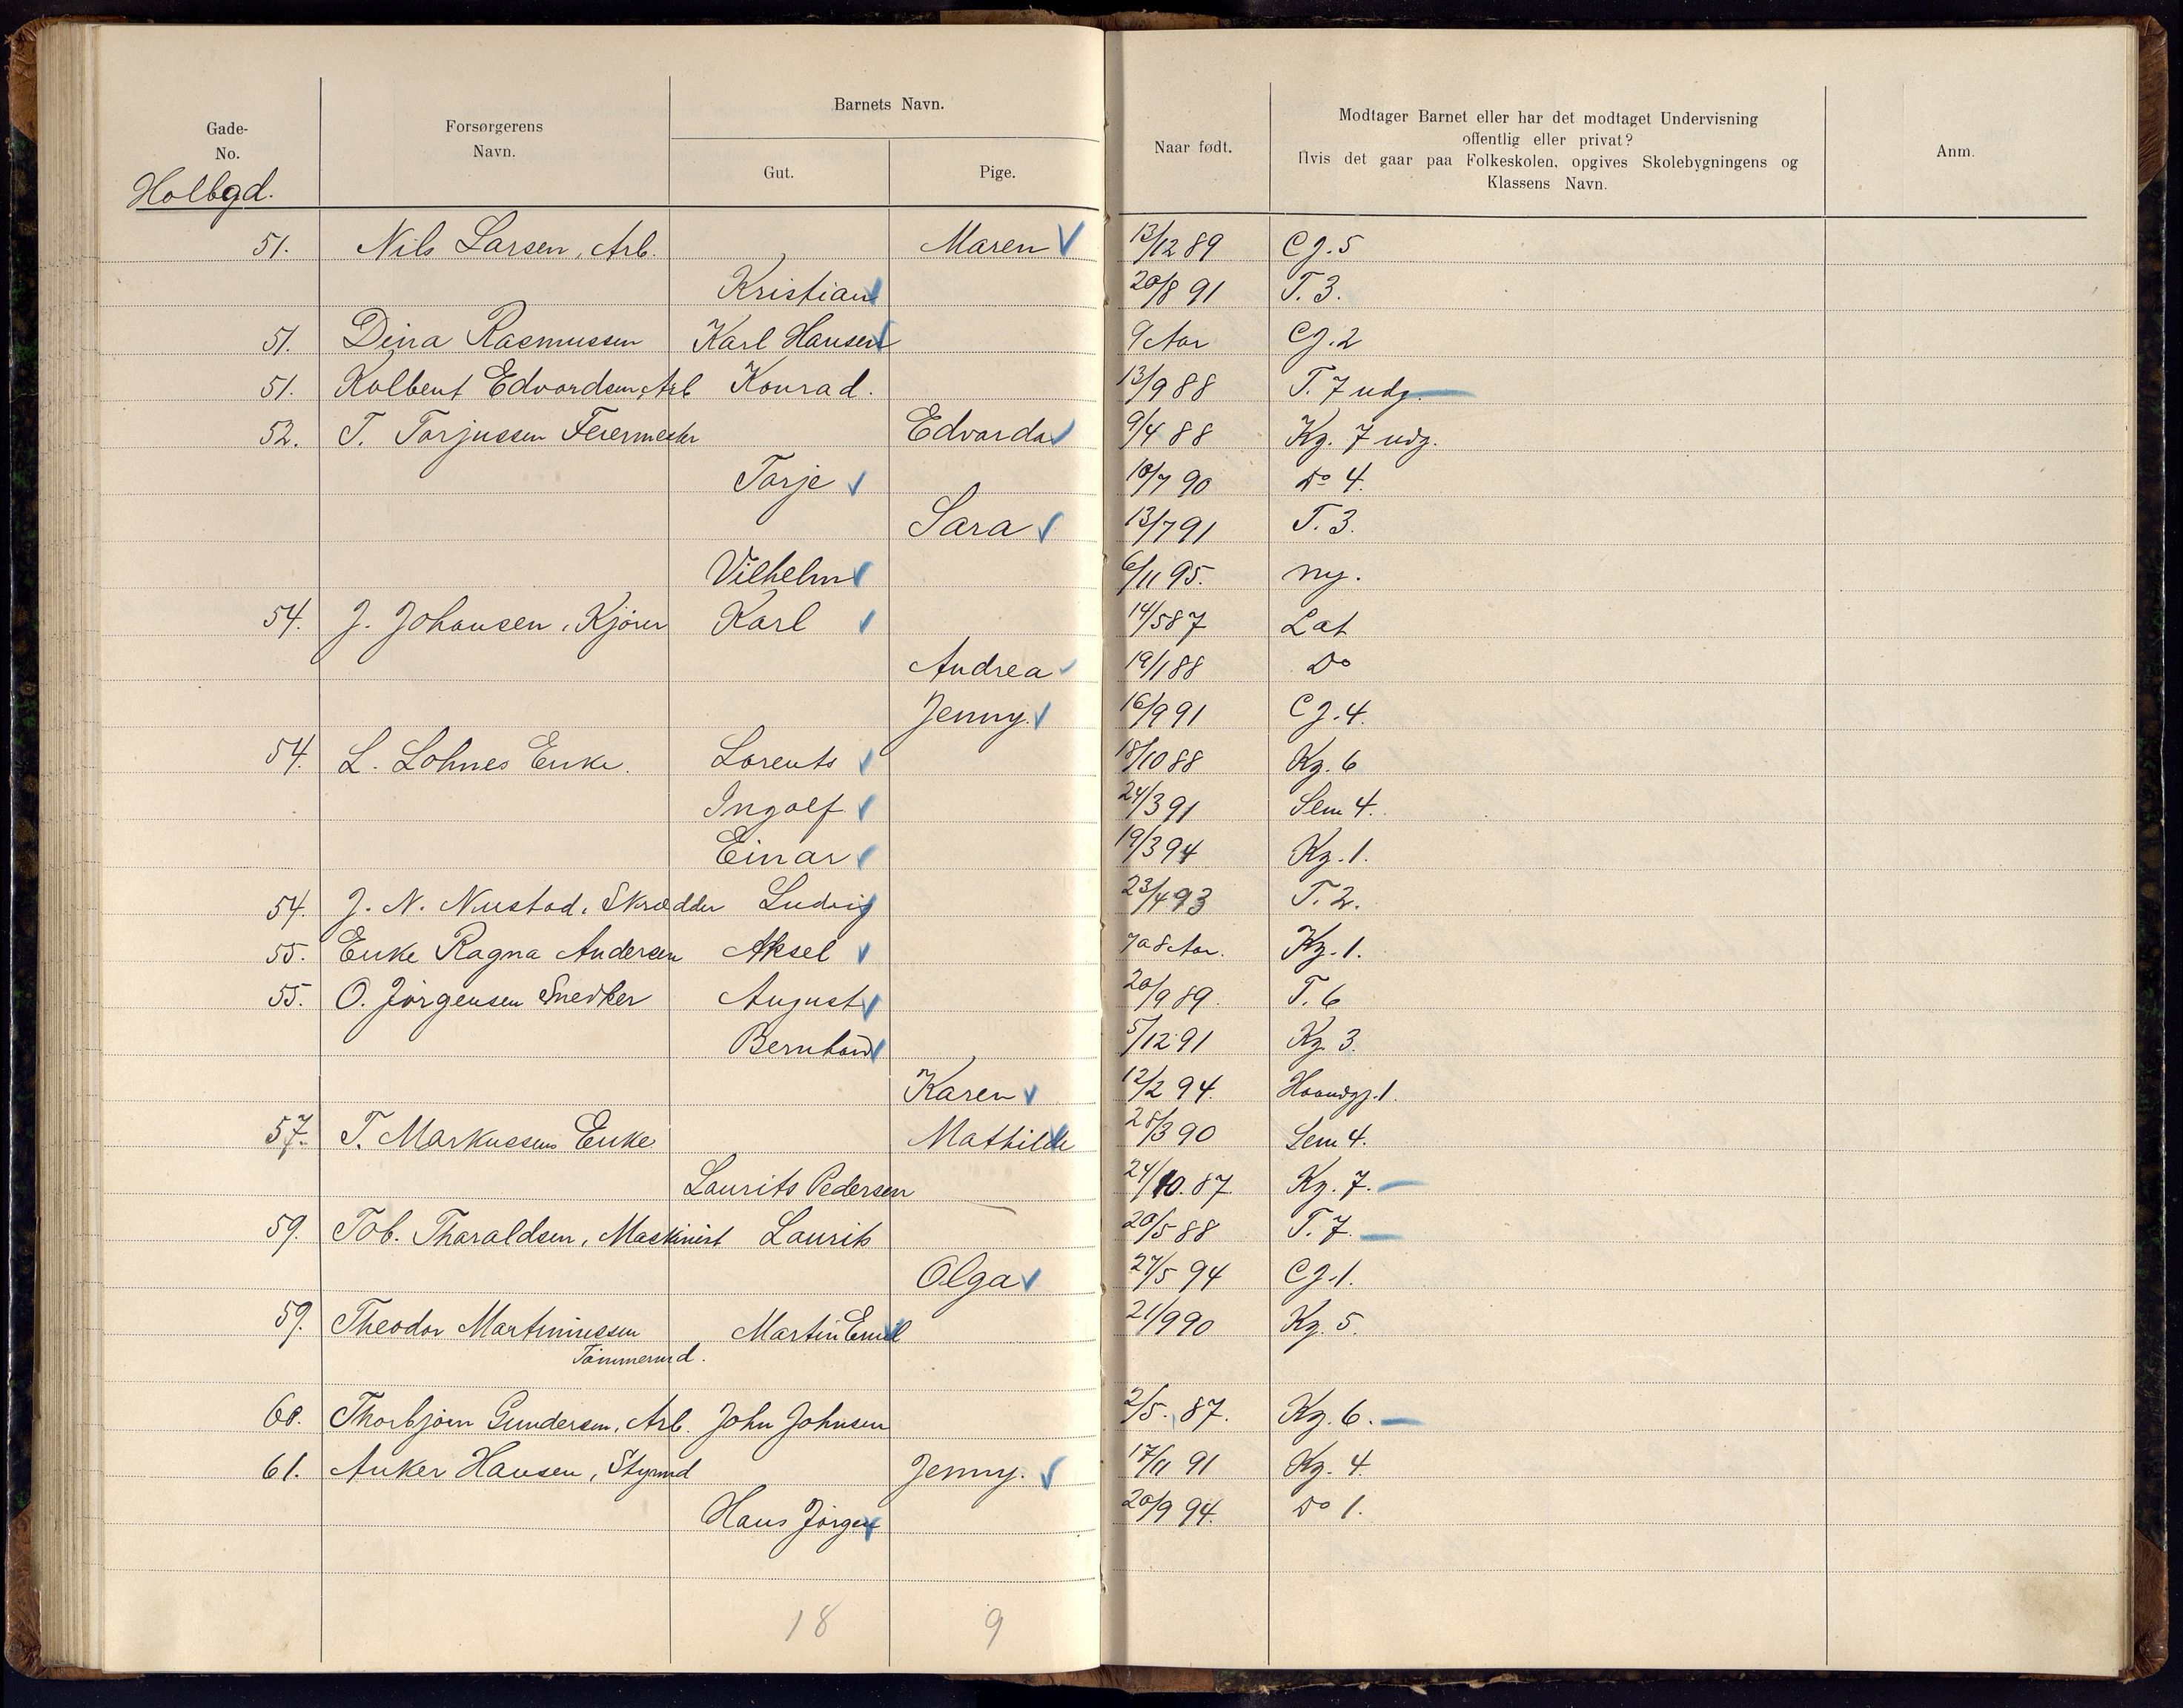 Gade-No. Forsørgerens Navn. Barnets Navn. Gut. Pige. Naar født. Modtager Barnet eller har det modtaget Undervisning offentlig eller privat? Hvis det gaar paa Folkeskolen, opgives Skolebygningens og Klassens Navn. Anm.
Holbgd.
51. Nils Larsen, Arb. Maren 13/12 89 Cg. 5
Kristian 20/8 91 T. 3.
51. Dina Rasmussen Karl Hansen 9 Aar Cg. 2
51. Kolbent Edvardsen, Arb Konrad. 13/9 88 T. 7 udg.
52. T. Tarjussen Feiermester Edvarda 9/4 88 Kg. 7 udg.
Tarje 10/7 90 Do 4.
Sara 13/7 91 T. 3.
Vilhelm 6/11 95. ny.
54. J. Johansen, Kjører Karl 14/5 87 Lat
Andrea 19/1 88 Do
Jenny. 16/9 91 Cg. 4.
54. L. Lohnes Enke. Lorents 18/10 88 Kg. 6
Ingolf 24/3 91 Sem 4.
Einar 19/3 94 Kg. 1.
54. J. N. Nustad, Skrædder Ludvig 23/4 93 T. 2.
55. Enke Ragna Andersen Aksel 7 a 8 Aar. Kg. 1.
55. O. Jörgensen Snedker August 20/9 89. T. 6
Bernhard 5/12 91 Kg. 3.
Karen 12/2 94. Haandgj. 1.
57. T. Markussens Enke Mathilde 28/3 90 Sem 4.
Laurits Pedersen 24/10. 87 Kg. 7.
59. Tob. Tharaldsen, Maskinist Laurits 20/5 88 T. 7.
Olga 27/5 94 Cg. 1.
59. Theodor Martiniussen Martin Emil 21/9 90 Kg. 5.
Tömmermd.
60. Thorbjörn Gundersen, Arb. John Johnsen 2/5. 87. Kg. 6.
61. Anker Hansen, Styrmd Jenny. 17/11 91 Kg. 4.
Hans Jörgen 20/9 94. Do 1.
18 9